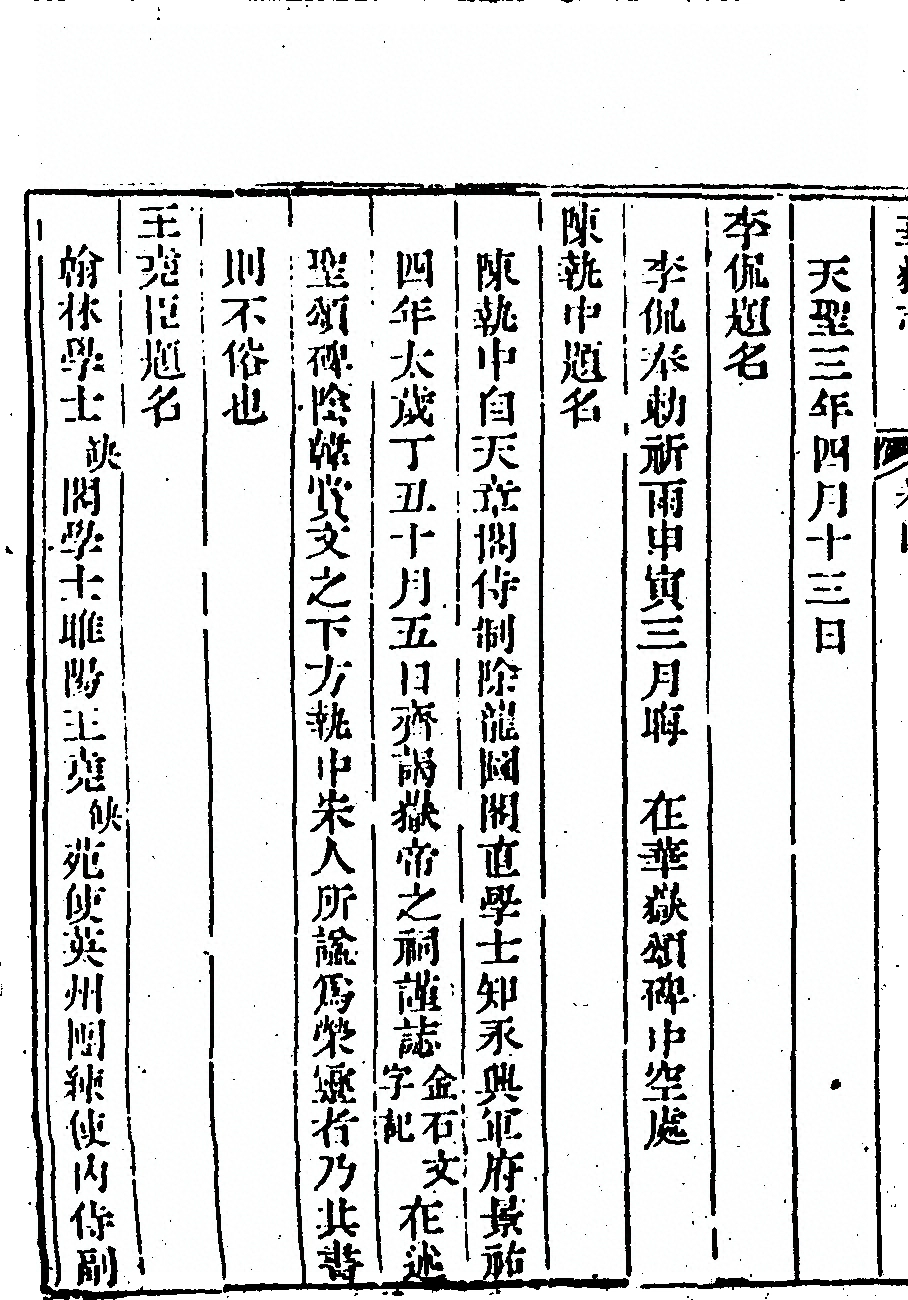 天聖三年四月十三日
李侃題名
李侃奉勅祈雨申寅三月晦　在華嶽頌碑中空處
陳執中題名
陳執中自天章閣侍制除龍圖閣直學士知永興軍府景祐
四年太歲丁丑十月五日齊謁嶽帝之祠謹誌金石文字記在述
聖頌碑陰韓賞文之下方執中宋人所謚為榮靈者乃其書
則不俗也
王堯臣題名
翰林學士缺閣學士睢陽王堯缺苑使英州團練使內侍副